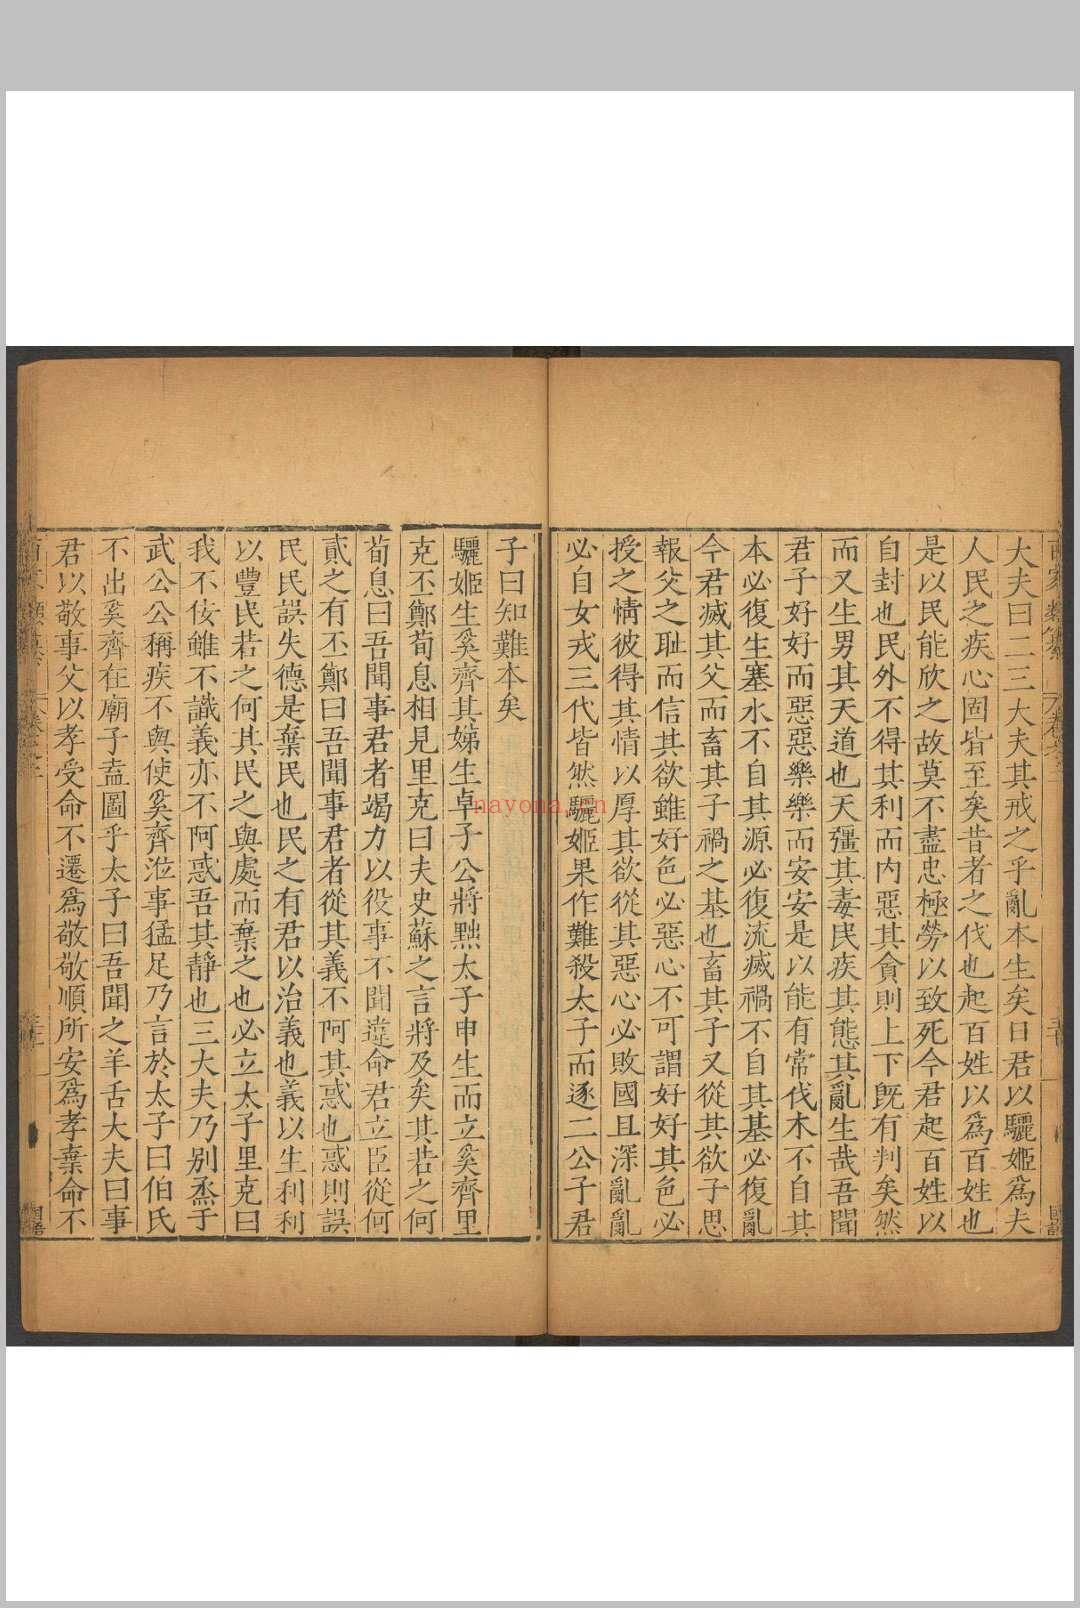 大夫曰二三大夫其戒之乎亂本生矣日君以驪姬爲夫
人民之疾心固皆至矣昔者之伐也起百姓以爲百姓也
是以民能欣之故莫不盡忠極勞以致死今君起百姓以
自封也民外不得其利而內惡其貪則上下既有判矣然
而又生男其天道也天彊其毒民疾其態其亂生哉吾聞
君子好好而惡惡樂樂而安安是以能有常伐木不自其
本必復生塞水不自其源必復流滅禍不自其基必復亂
今君滅其父而畜其子禍之基也畜其子又從其欲子思
報父之耻而信其欲雖好色必惡心不可謂好好其色必
授之情彼得其情以厚其欲從其惡心必敗國且深亂亂
必自女戎三代皆然驪姬果作難殺太子而逐二公子君
子曰知難本矣
驪姬生奚齊其娣生卓子公將黜太子申生而立奚齊里
克丕鄭荀息相見里克曰夫史蘇之言將及矣其若之何
荀息曰吾聞事君者竭力以役事不聞違命君立臣從何
貳之有丕鄭曰吾聞事君者從其義不阿其惑也惑則誤
民民誤失德是棄民也民之有君以治義也義以生利利
以豐民若之何其民之與處而棄之也必立太子里克曰
我不佞雖不識義亦不阿惑吾其靜也三大夫乃別烝于
武公公稱疾不與使奚齊涖事猛足乃言於太子曰伯氏
不出奚齊在廟子盍圖乎太子曰吾聞之羊舌大夫曰事
君以敬事父以孝受命不遷爲敬敬順所安爲孝棄命不
國語
nayona.cn